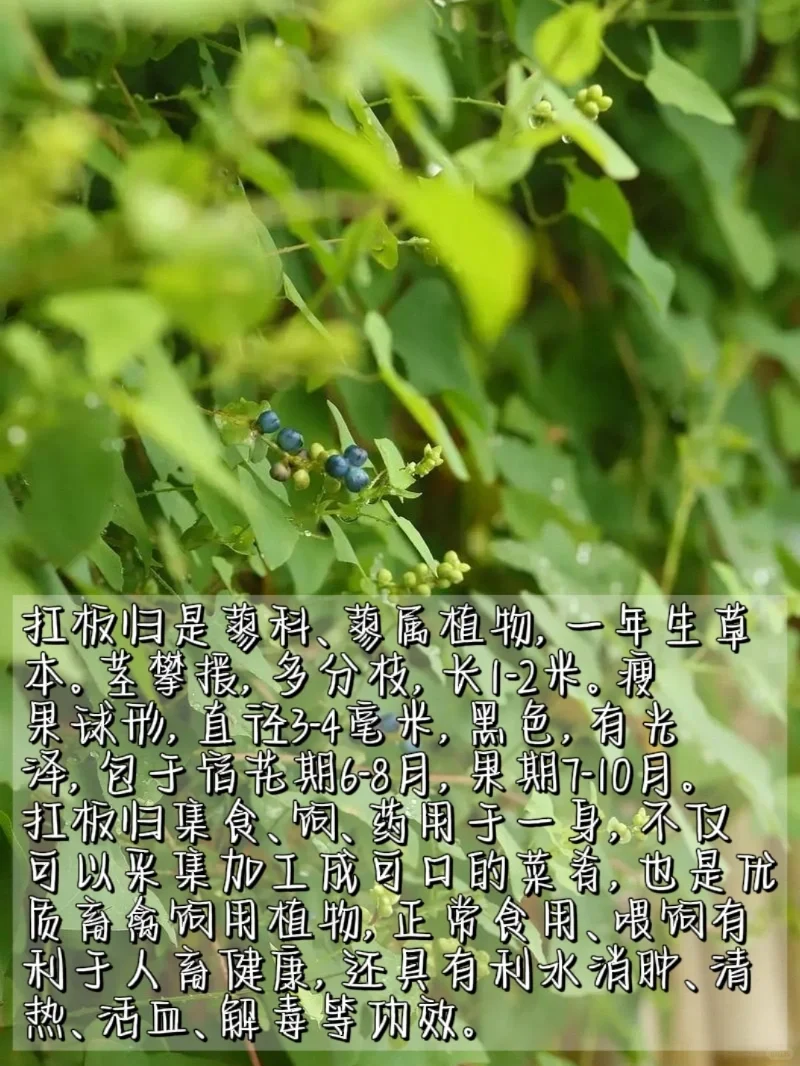 扛板归是蓼科、蓼属植物, 一年生草
本。茎攀援, 多分枝, 长1-2米。瘦
果球形, 直径3-4毫米, 黑色, 有光
泽, 包于宿花期6-8月, 果期7-10月。
扛板归集食、饲、药用于一身, 不仅
可以采集加工成可口的菜肴, 也是优
质畜禽饲用植物, 正常食用、喂饲有
利于人畜健康, 还具有利水消肿、清
热、活血、解毒等功效。